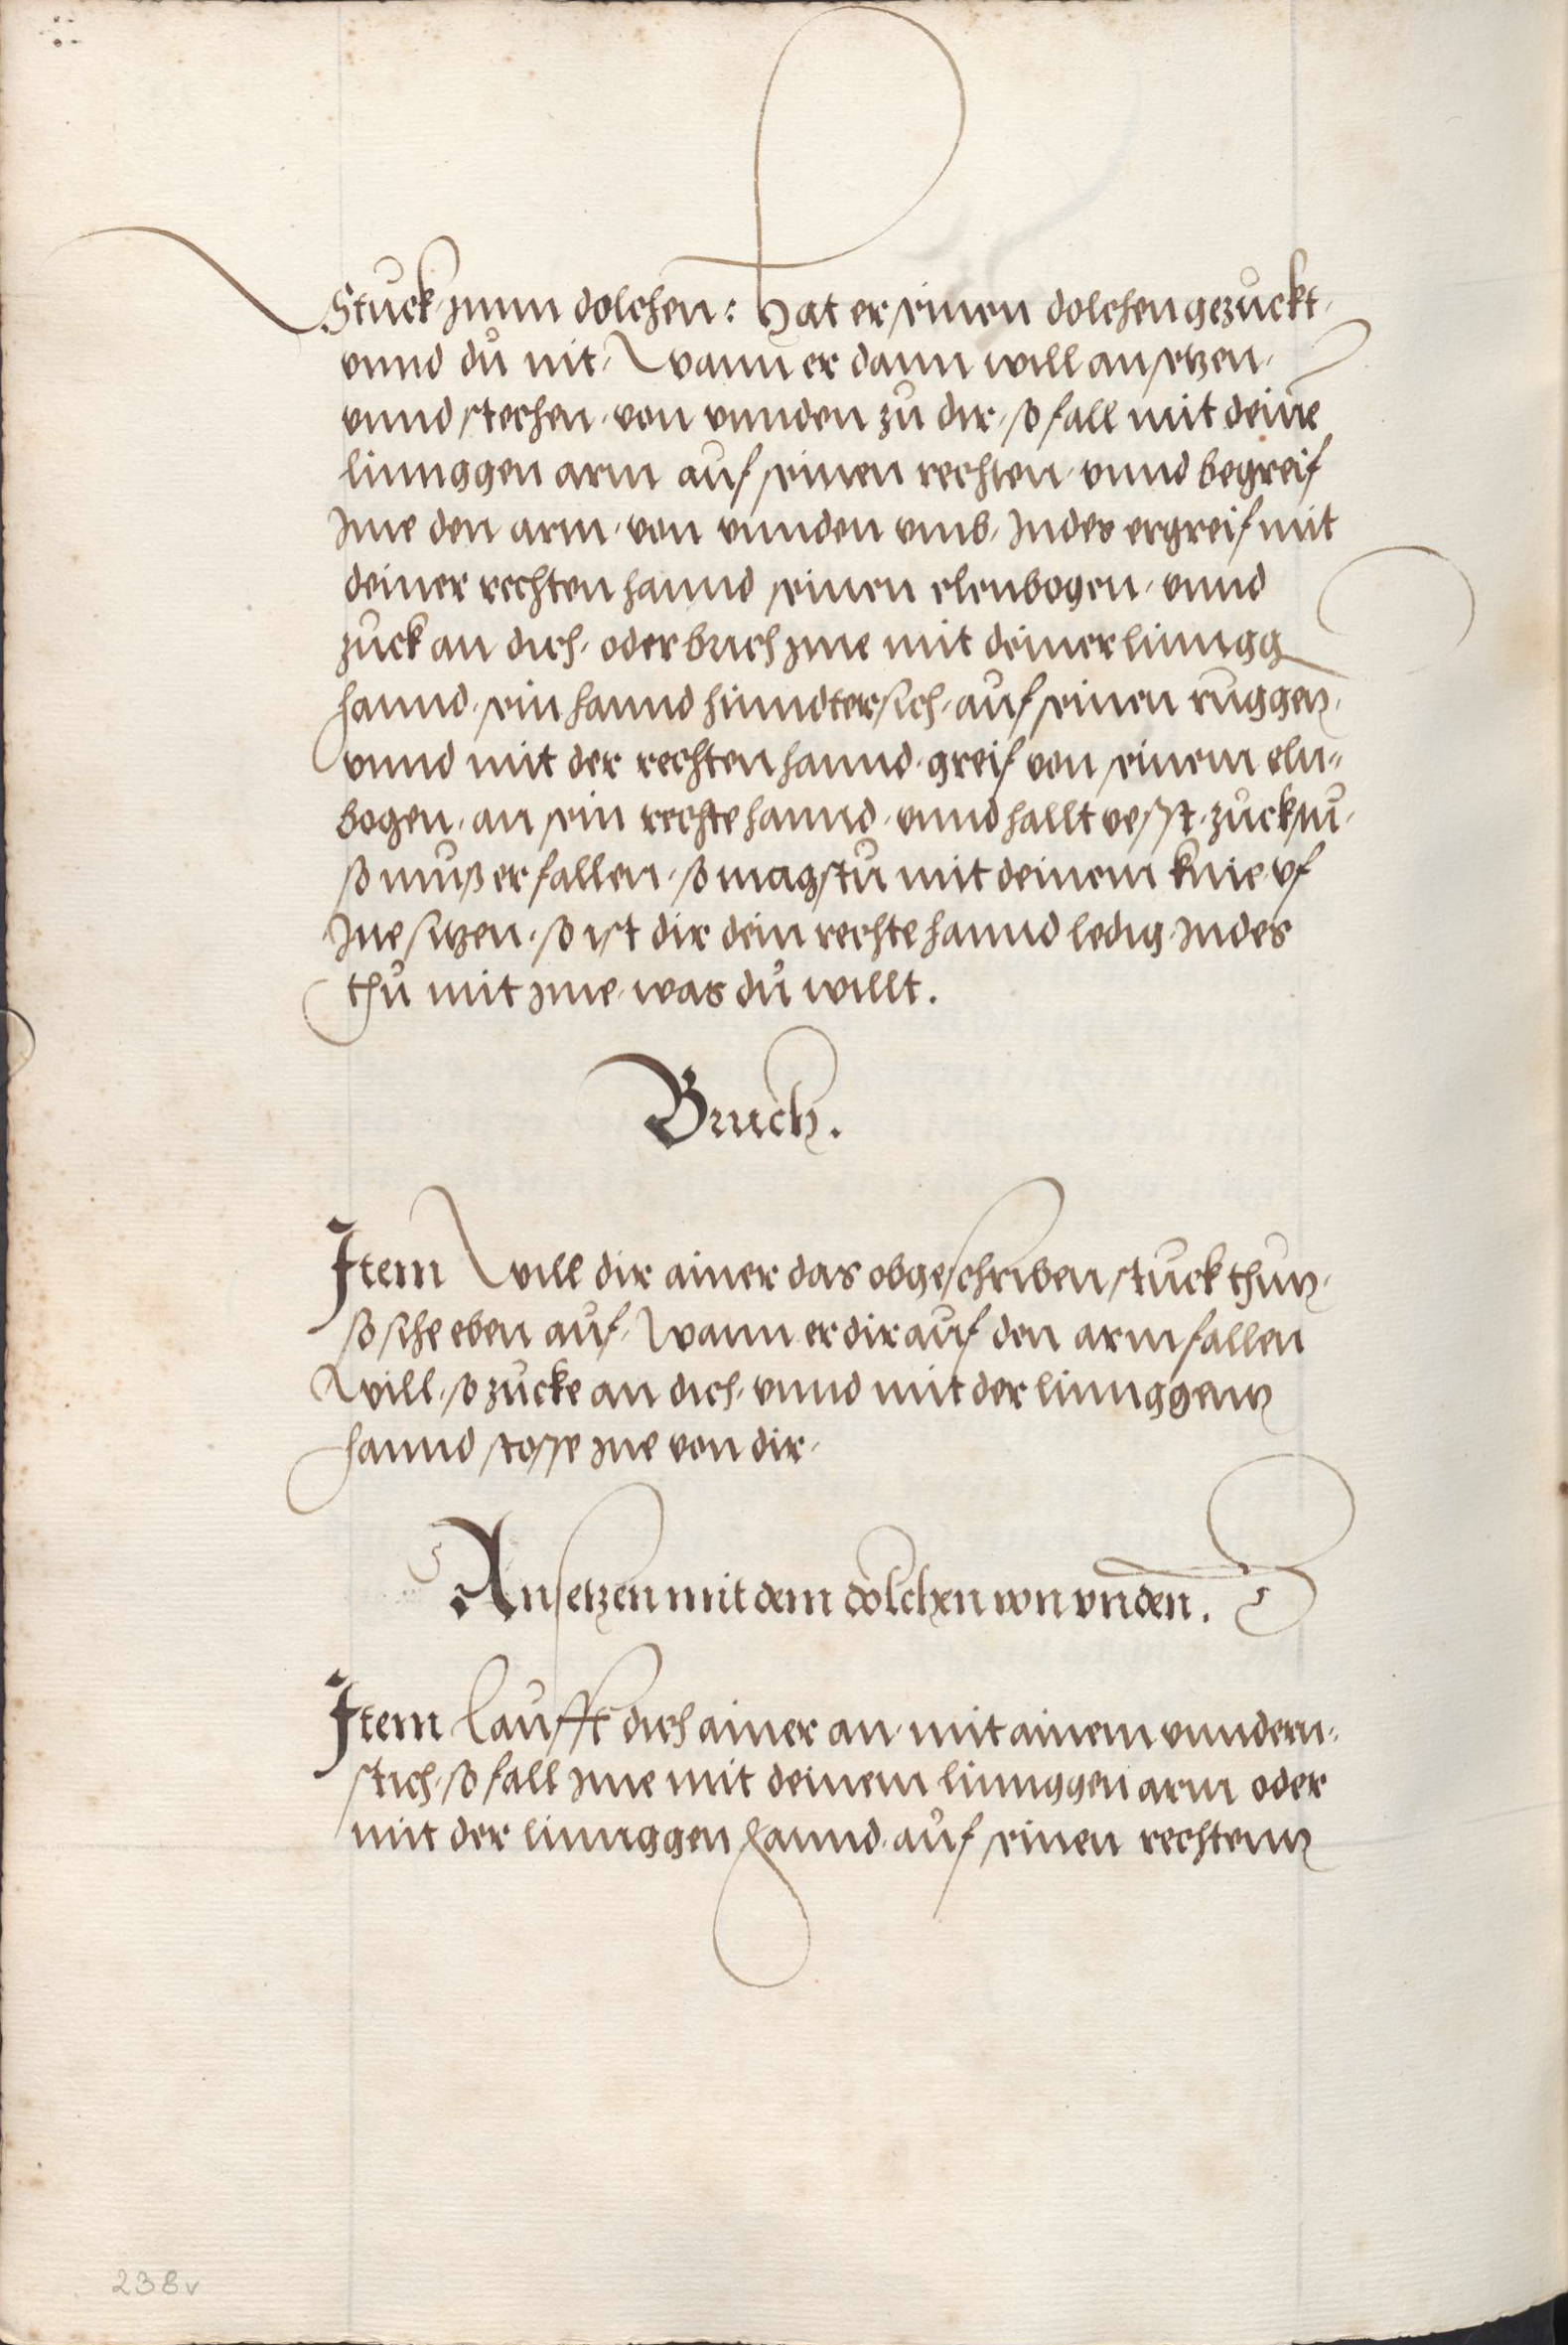 Stuck zum dolchen: Hat er seinen dolchen gezuckt,
vnnd du nit, Wann er dann will ansetzen,
vnnd stechen, von vnnden zu dir, so fall mit deine
linnggen arm auf seinen rechten, vnnd begreif
Ime den arm, von vnnden vmb, Indes ergreif mit
deiner rechten hannd seinen elenbogen, vnnd
zuck an dich, oder brich Ime mit deiner linngg
hannd, sein hannd hinndtersich, auf seinen ruggen,
vnnd mit der rechten hannd, greif von seinem eln-
bogen, an sein rechte hannd, vnnd hallt vesst, zuckstu,
so muß er fallen, so magstu mit deinem knie vf
Ine sitzen, so ist dir dein rechte hannd ledig, Indes
thu mit Ime, was du willt.
Bruch.
Item Will dir ainer das obgeschriben stuck thun,
so sihe eben auf, Wann er dir auf den arm fallen
Will, so zucke an dich, vnnd mit der linnggenn
hannd stosse Ine von dir,
Ansetzen mit dem dolchen von vnden.
Item Laufft dich ainer an, mit ainem vnndern,
stich, so fall Ime mit deinem linnggen arm oder
mit der linnggen hannd, auf seinen rechtenn
238v